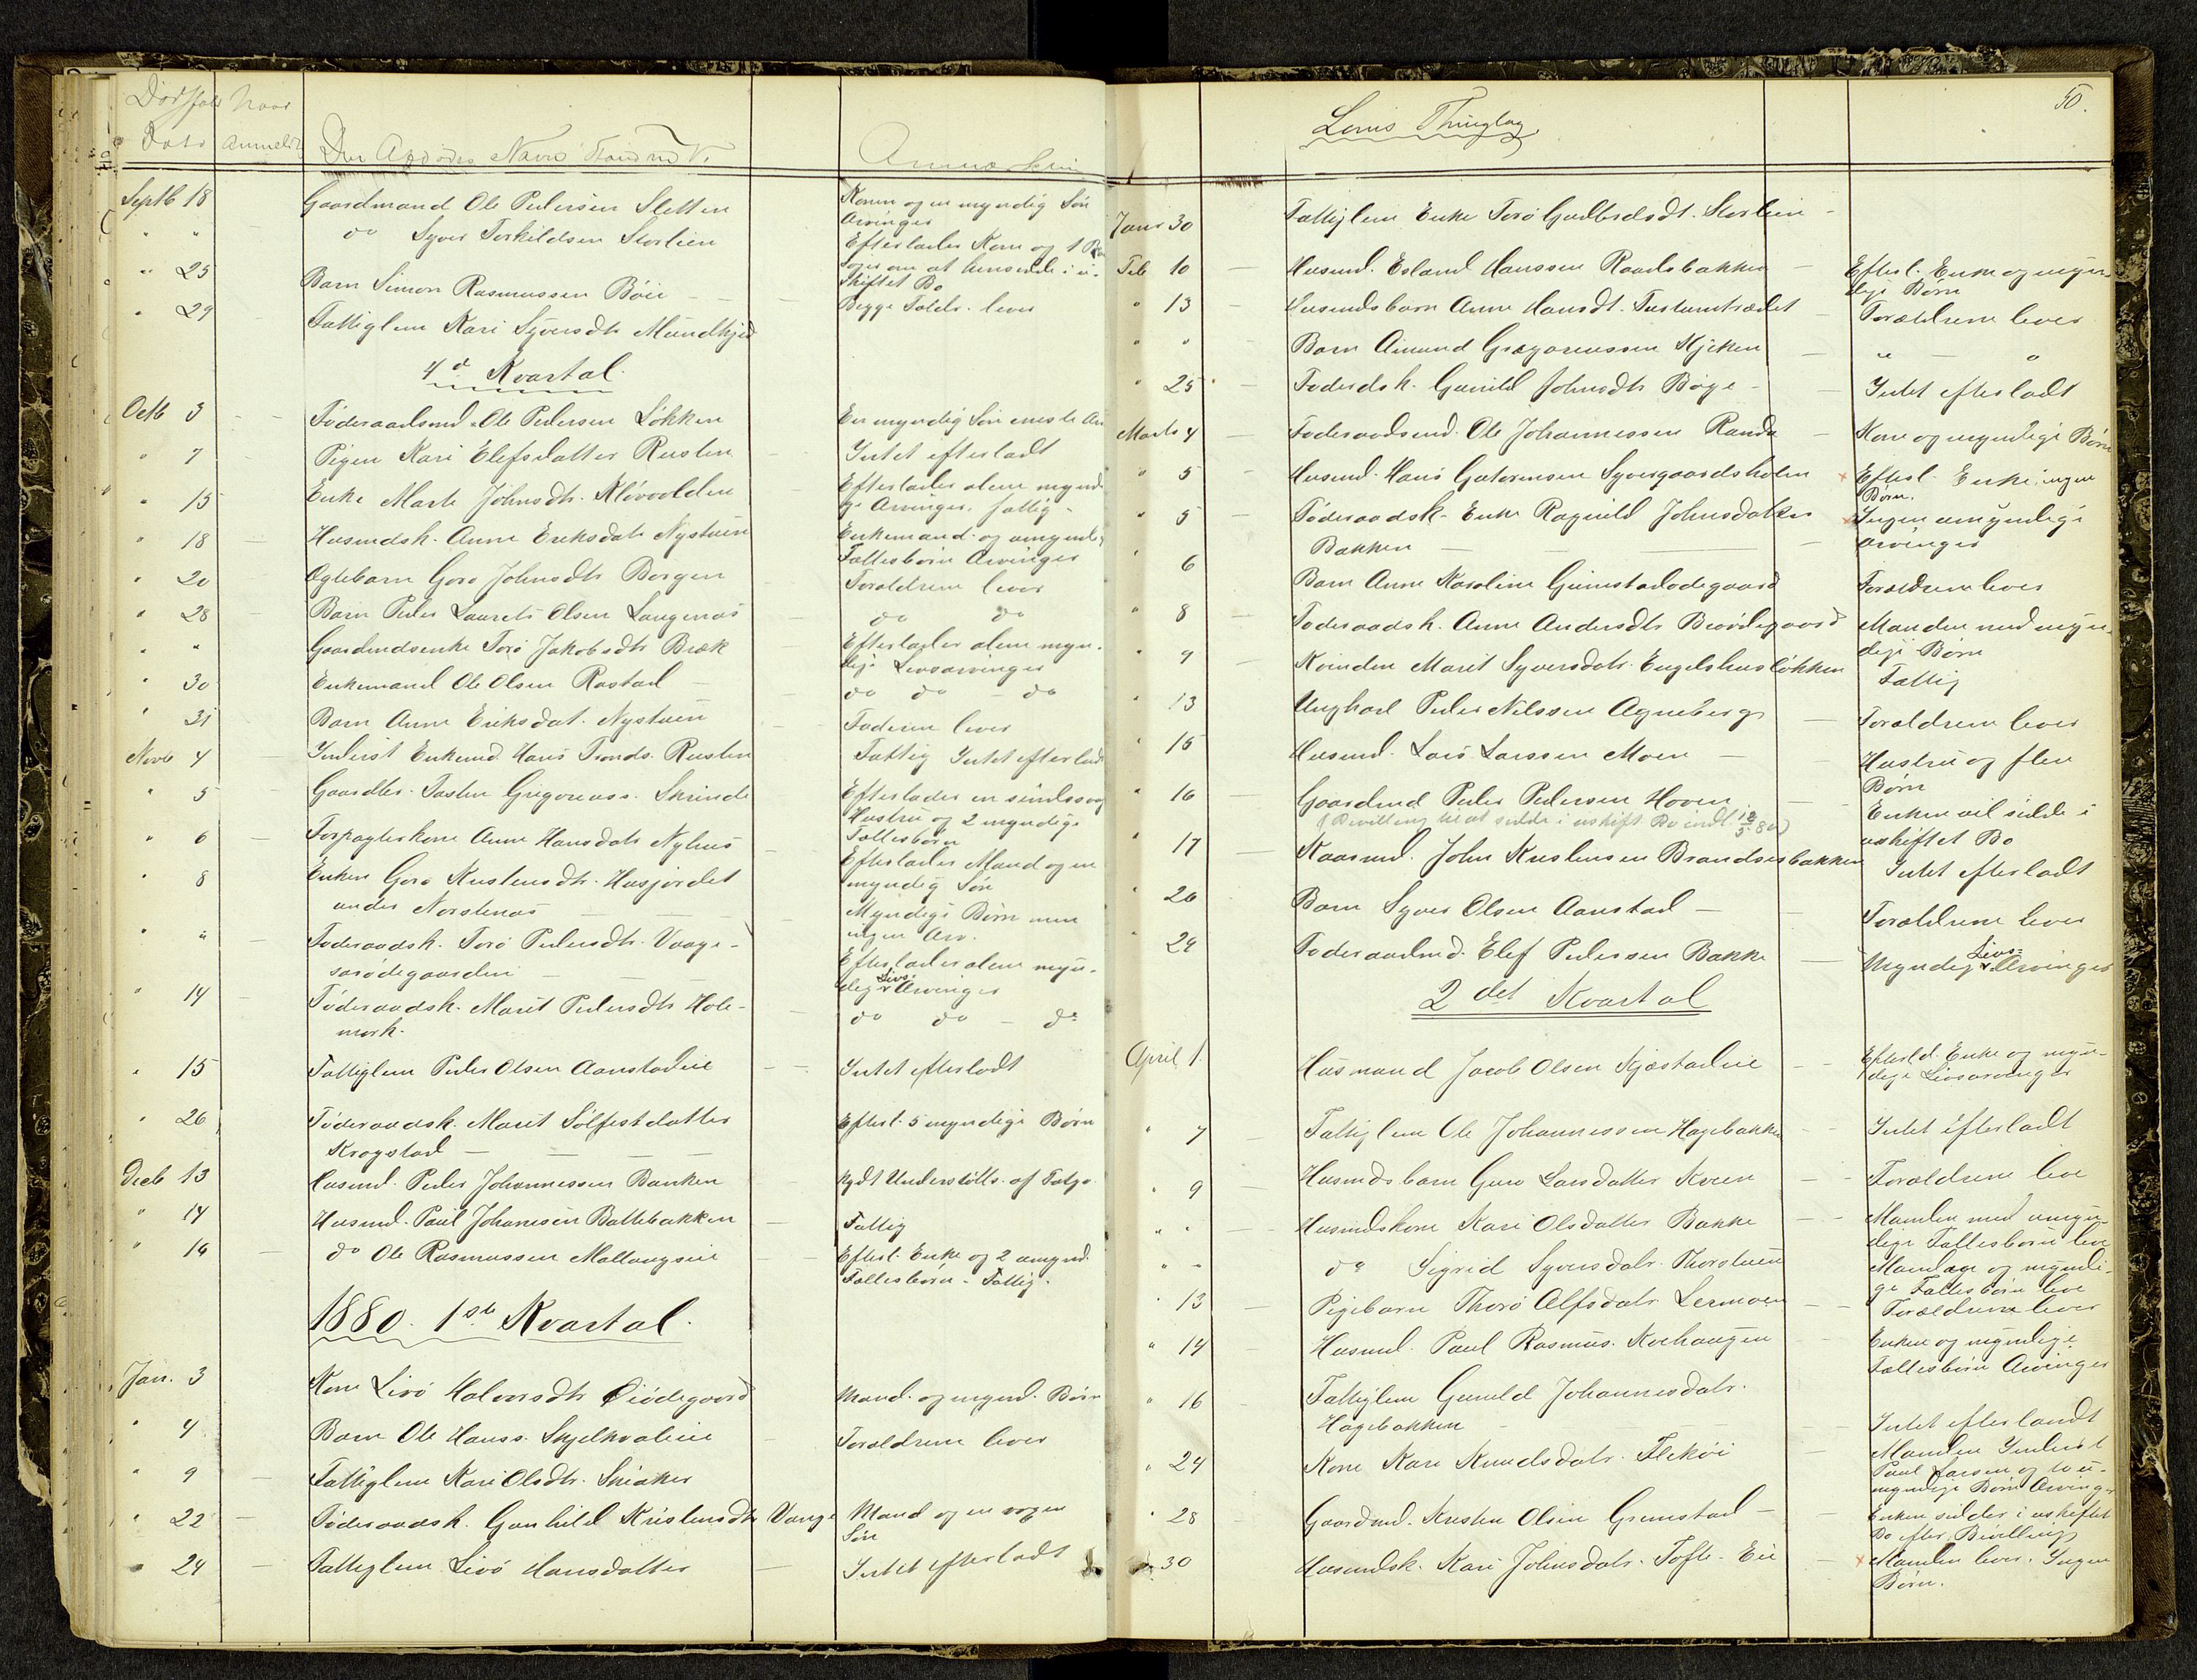 Dødsfald Naar
Dato Anmeldt Den Afdødes Navn Stand
Septb 18 Gaardmand Ole Pedersen Sletten Konen og en myndig Søn
Arvinger
" " do Syver Torkildsen Storlien Efterlader Kone og 1
Skiftet Bo
" 25 Barn Simon Rasmussen Böie Begge Foldr. lever
" 29 Fattiglem Kari Syversdtr
4de Kvartal
Octb 3 Föderaadsmd Ole Pedersen Løkken En myndig Søn eneste
" 7 Pigen Kari Elefsdatter Rusten Intet efterladt
" 15 Enke Marte Johnsdtr. Klövvolden Efterlader alene mynd-
ge Arvinger. fattig
" 18 Husmdsk. Anne Eriksdatr Nystuen Enkemand og umynd.
Fællesbörn Arvinger
" 20 Ægtebarn Goro Johnsdtr Borgen Forældrene lever
" 28 Barn Peder Laurits Olsen Langenæs do do
" " Gaardmdsenke Torö Jakobsdtr Bræk Efterlader alene myn-
dige Livsarvinger
" 30 Enkemand Ole Olsen Rastad do do - do
" 31 Barn Anne Eriksdat. Nystuen Faderen lever
Novb 4 Inderst Enkemd. Hans Tronds. Rusten Fattig Intet efterladt
" 5 Gaardbr. Gregoriuss. Skrinde Efterlader en sindssvag
Hustru og 2 myndige
Fællesbörn
" 6 Forpagterkone Anne Hansdatr Nyhus Efterlader Mand og en
myndig Søn
" 8 Enken Goro Kristensdtr. Husjordet Myndige Børn men
under Norstenæs ingen Arv.
" " Föderaadsk. Torö Pedersdtr. Vaage- Efterlader alene myn-
sarödegaarden dige Livs-Arvinger
" 14 Föderaadsk. Marit Pedersdtr Hole- do do - do
mork.
" 15 Fattiglem Peder Olsen Aanstadeie Intet efterladt
" 26 Föderaadsk. Marit Sölfestdatter Efterl. 5 myndige Börn
Krogstad
Decb 13 Husmd. Peder Johannessen Banken Nydt Understötts. af Fatgv.
" 14 Husmd. Paul Johanssen Battebakken Fattig
" 16 do Ole Rasmussen Efterl. Enke og 2 umynd.
Fællesbörn - Fattig.
1880. 1ste Kvartal.
Jan. 3 Kone Livö Halvorsdtr Öiödegaard Mand og mynd. Börn
" 4 Barn Ole Hanss. Skjelkvaleie Forældrene lever
" 9 Fattiglem Kari Olsdtr. Sniaker
" 22 Föderaadsk. Gunhild Kristensdtr Vange Mand og en voxen
Sön
" 24 Fattiglem Livö Hansdatter Intet efterladt
Loms Thinglag.
50.
Janr 30 Fattiglem Enke Torö Gudbrdsdt. Storlien
Feb 10 Husmd. Erland Hanssen Raadsbakken Efterl. Enke og myn-
dige Börn
" 13 Husmdsbarn Anne Hansdt. Forældrene lever
" " Barn Amund Gregoriussen Kjeken " - "
" 25 Foderdsk. Gunild Johnsdtr Böye Intet efterladt
Marts 4 Foderaadsmd. Ole Johannessen Randa Kone og myndige Börn
" 5 Husmd. Hans Syvergaardsholen Efterl. Enke, ingen
Børn.
" 5 Föderaadsk. Enke Ragnild Johnsdatter Ingen umyndige
Bakken Arvinger
" 6 Barn Anne Karoline Grimstadødegaard Forældrene lever
" 8 Foderaadsk. Anne Andersdtr Manden med myn-
dige Börn
" 9 Kvinden Marit Syversdatr. Engelshusløkken Fattig
" 13 Ungkarl Peder Nilssen Agneberg Forældrene lever
" 15 Husmd. Lars Larssen Moen Hustru og flere
Børn
" 16 Gaardmd Peder Pedersen Hoven Enken vil sidde i
(Bevilling til at sidde i uskift. Bo indl 12/5 80) uskiftet Bo
" 17 Kaarmd. John Kristensen Brandsesbakken Intet efterladt
" 20 Barn Syver Olsen Aanstad Forældrene lever
" 24 Foderaadmd. Elef Pedersen Bakke Myndige Livs-Arvinger
2det Kvartal
April 1 Husmand Jacob Olsen Kjæstadeie Efterld. Enke og myn-
dige Livsarvinger
" 7 Fattiglem Ole Johannessen Hagebakken Intet efterladt
" 9 Husmdsbarn Guro Larsdatter Kveen Forældrene leve
" " Husmdskone Kari Olsdatter Bakke Manden med umyn-
dige Fællesbörn leve
" " do Sigrid Syversdatr. Thorstuen Manden og myndi-
ge Fællesbörn leve
" 13 Pigebarn Thorö Alfsdatr Lermoen Forældrene lever
" 14 Husmd. Paul Rasmus. Kvehaugen Enken og myndige
Fællesbörn Arvinger
" 16 Fattiglem Gunild Johannesdatr.
Hagebakken Intet efterladt
" 24 Kone Kari Knudsdatr. Flekøi Manden Inderst
Paul Larsen og to u-
myndige Börn Arvinger
" 28 Gaardmd. Kristen Olsen Grimstad Enken sidder i uskiftet
Bo efter Bevilling
" 30 Husmdsk. Kari Johnsdatr. Tofte-Eie Manden lever. Ingen
Børn.